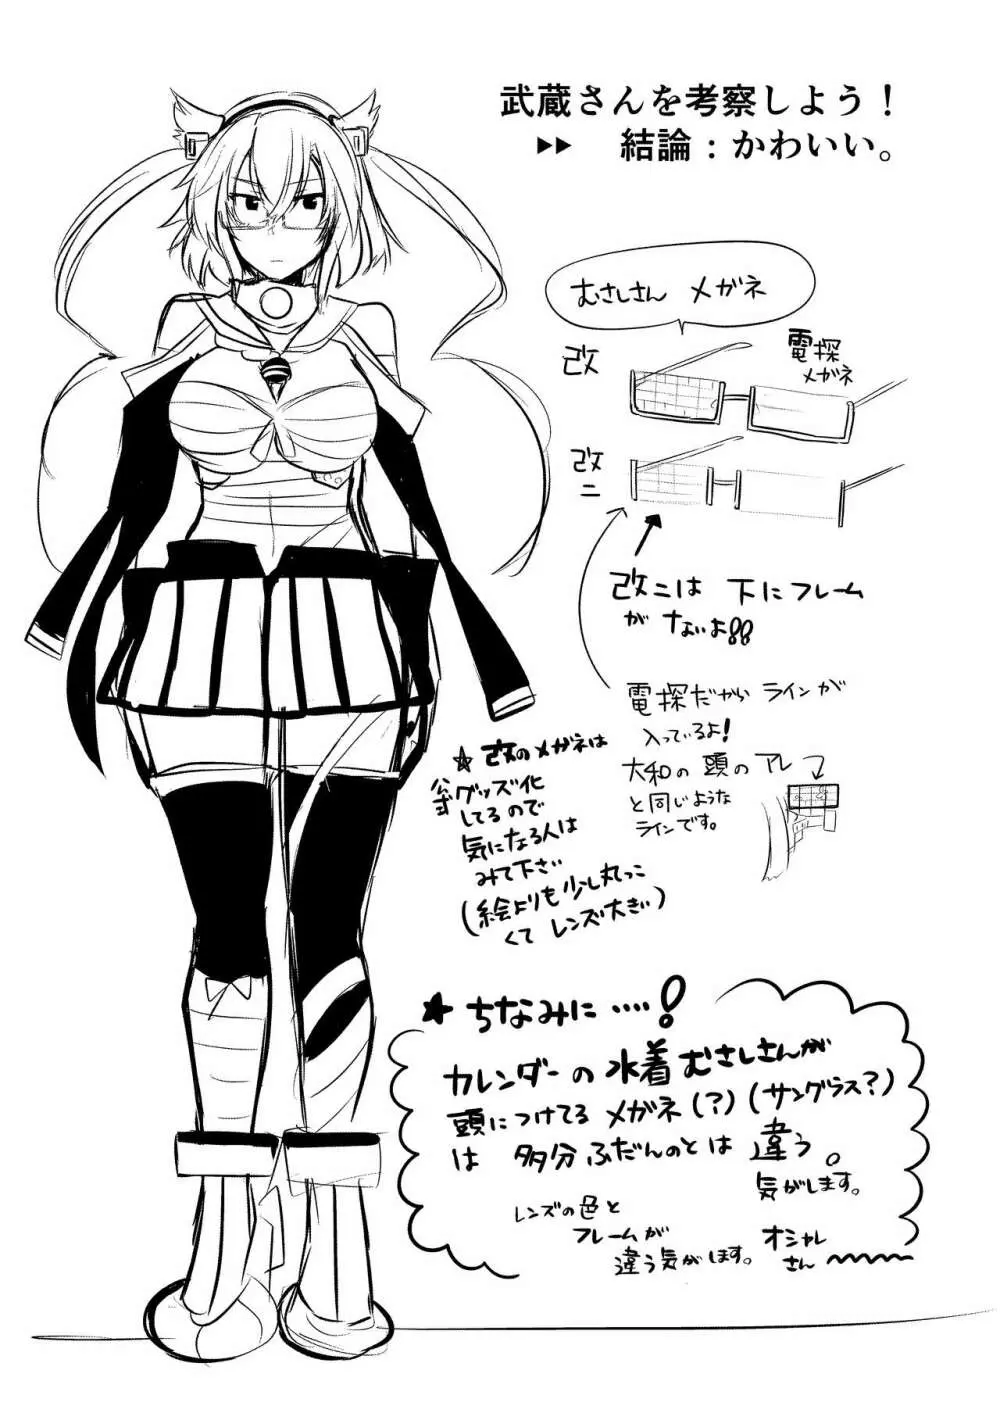 武蔵さんを考察しよう！
▶▶ 結論：かわいい。
むさしさん メガネ
改
電探
メガネ
改
二
改二は 下にフレーム
が ないよ!!
電探だから ラインが
入っているよ!
大和の頭のアレ
と同じような
ラインです。
☆改のメガネは
公式グッズ化
してるので
気になる人は
みて下さい
(絵よりも少し丸っこ
くて レンズ大きい)
★ちなみに…!
カレンダーの水着むさしさんが
頭につけてるメガネ(?)(サングラス?)
は 多分ふだんのとは 違う。
気がします。
レンズの色と
フレームが
違う気がします。
オシャレ
さん